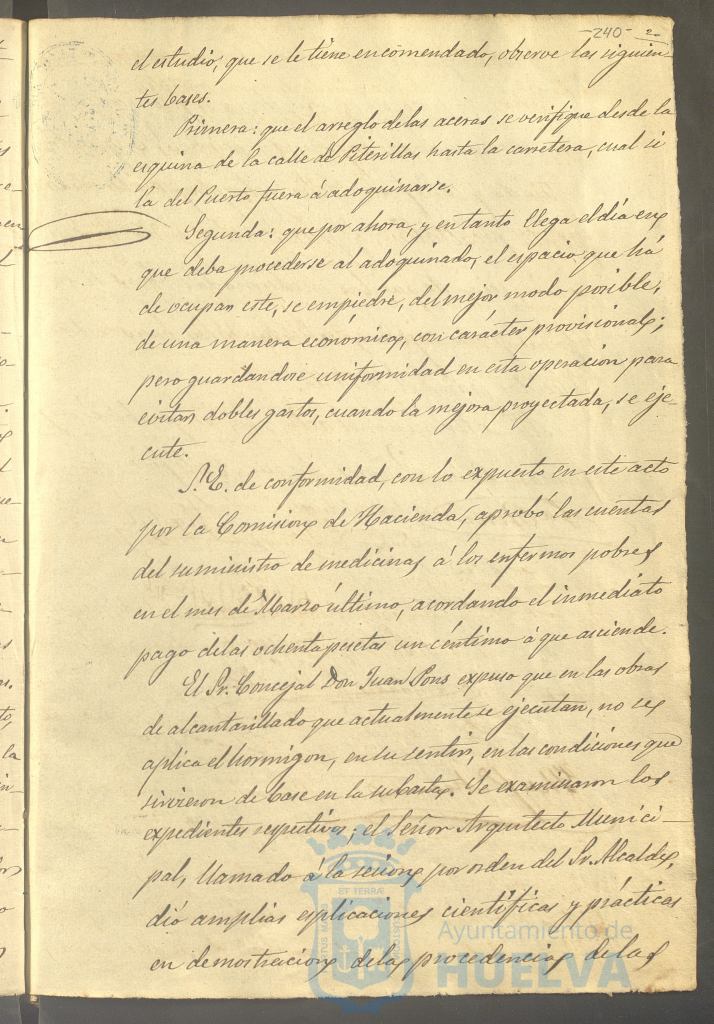 -240- 2-
el estudio, que se le tiene encomendado, observe las siguien-
tes bases.
Primera: que el arreglo de las aceras se verifique desde la
esquina de la calle de Piterillas hasta la carretera, cual si
la del Puerto fuera á adoquinarse.
Segunda: que por ahora, y en tanto llega el día en
que deba procederse al adoquinado, el espacio que há
de ocupar este, se empiedre, del mejor modo posible,
de una manera económica, con carácter provisional;
pero guardandose uniformidad en esta operación para
evitar dobles gastos, cuando la mejora proyectada, se eje-
cute.
S.E. de conformidad, con lo expuesto en este acto
por la Comision de Hacienda, aprobó las cuentas
del suministro de medicinas á los enfermos pobres
en el mes de Marzo último, acordando el inmediato
pago de las ochenta pesetas un céntimo á que asciende.
El Sr. Concejal Don Juan Pons expuso que en las obras
de alcantarillado que actualmente se ejecutan, no se
aplica el hormigon, en su sentir, en las condiciones que
sirvieron de base en la subasta. Se examinaron los
expedientes respectivos; el Señor Arquitecto Munici-
pal, llamado á la sesion por orden del Sr. Alcalde,
dió amplias esplicaciones científicas y prácticas
en demostracion de la procedencia de las
ET TERRÆ
Ayuntamiento de
HUELVA